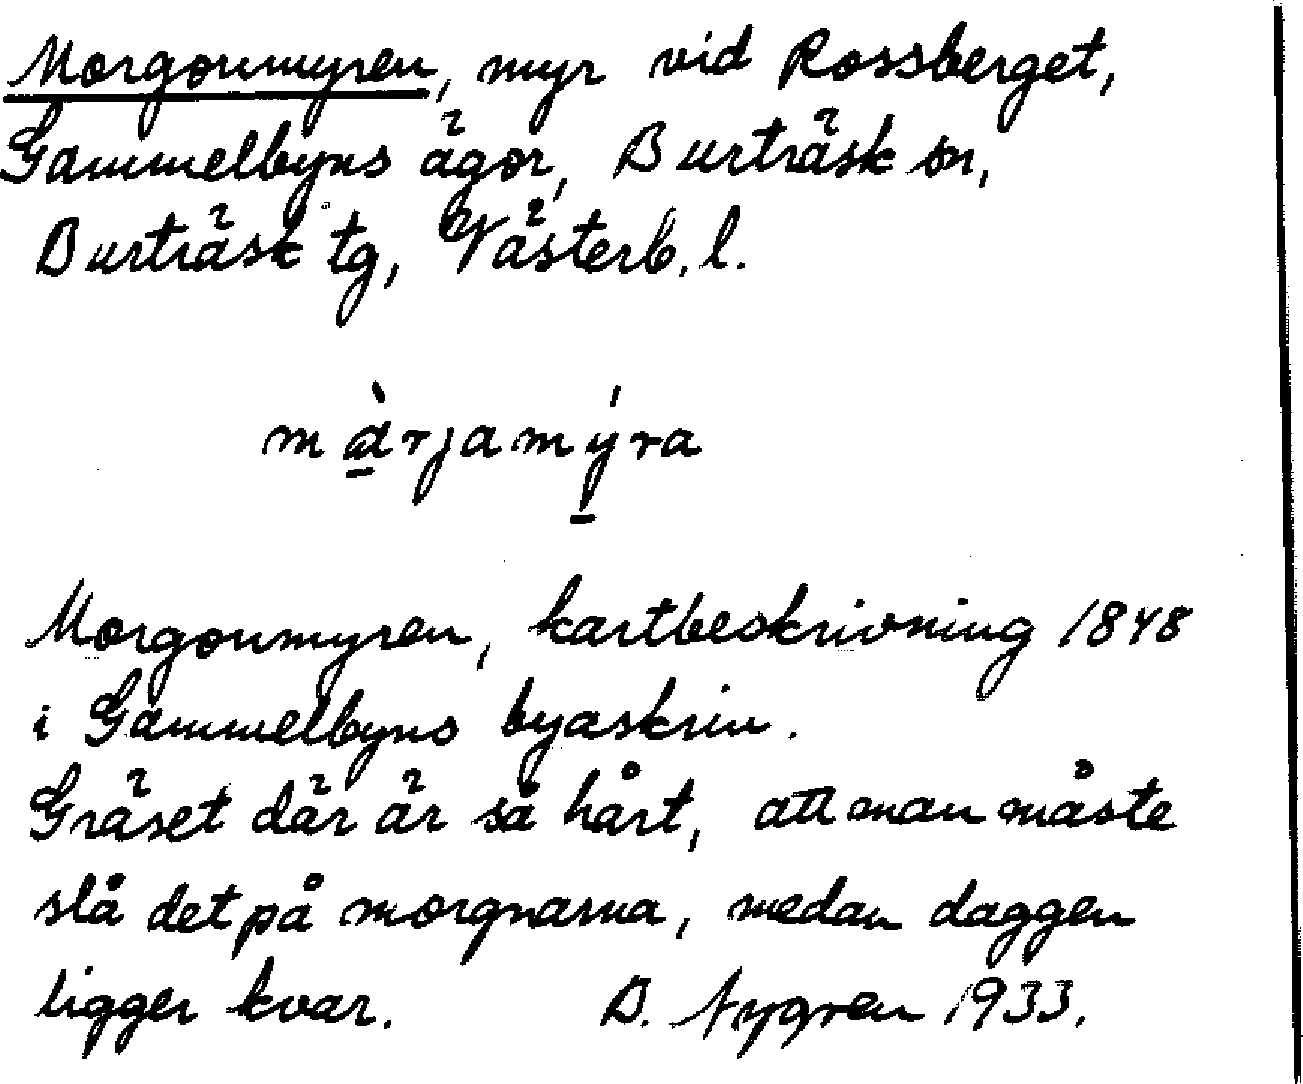 Morgonmyren, myr vid Rossberget,
Gammelbyns ägor, Burträsk sn,
Burträsk tg, Västerb. l.
mà̱rjamý̱ra
Morgonmyren, kartbeskrivning 1848
i Gammelbyns byaskrin.
Gräset där är så hårt, att man måste
slå det på morgnarna, medan daggen
ligger kvar. B. Nygren 1933.